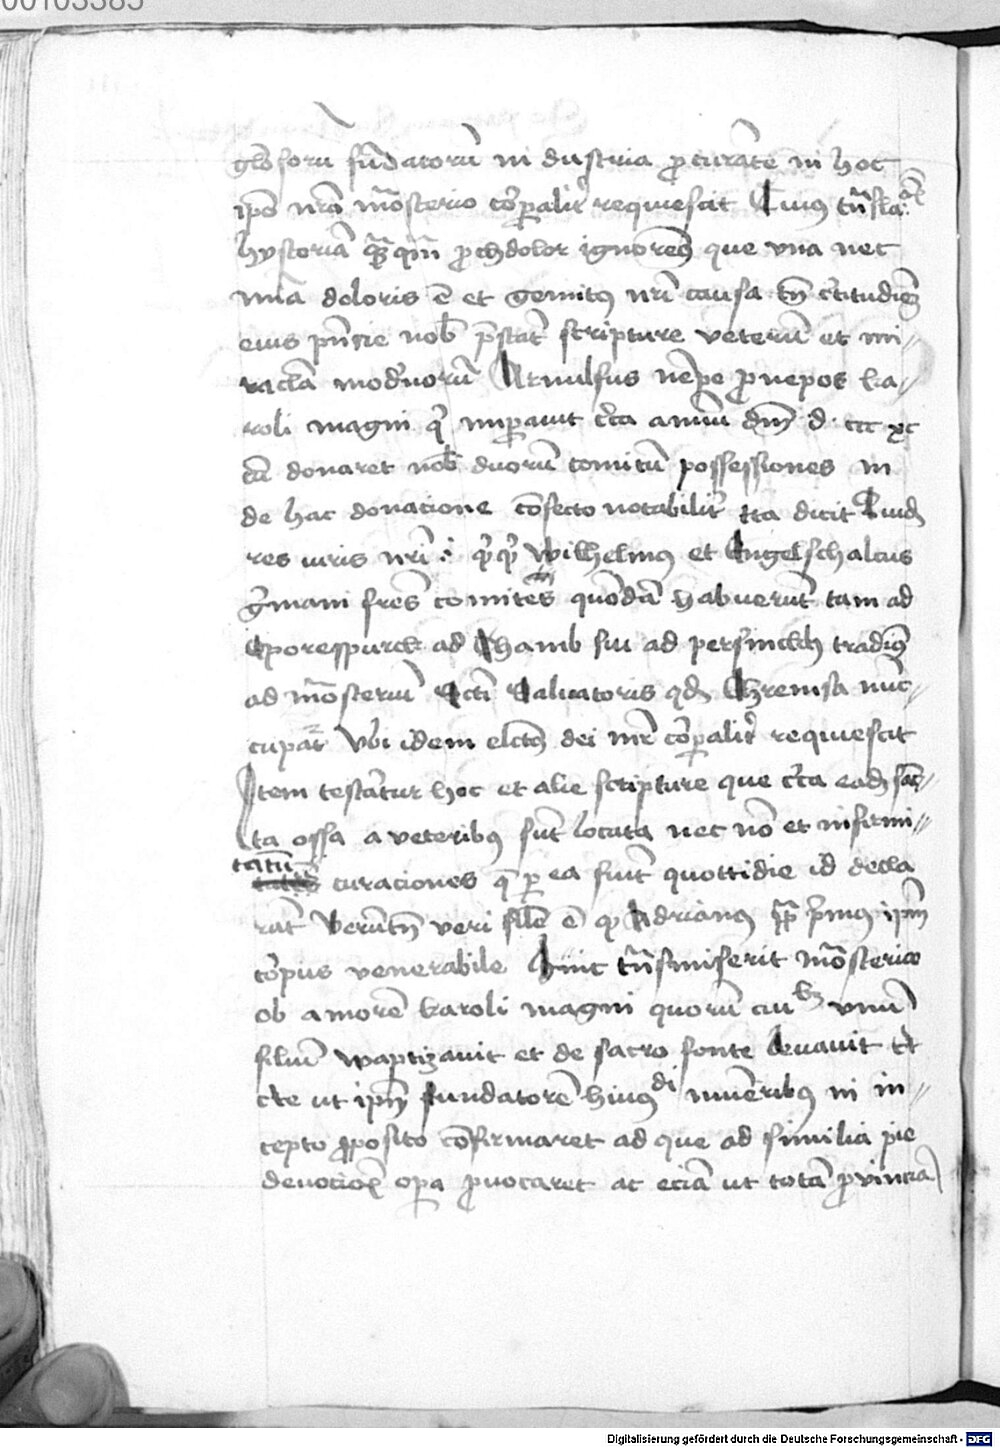 00103385
gl̄osoru fūdatorū in dustria ꝓcurāte in hoc
ip̄o nr̄o mōsterio corꝑalit̄ requiescit Cuius tn̄
hystoriā ꝓchdolor ignores que vna nec
doloris ē et gemitus nr̄i causa tn̄ c̄titudiēs
eius pn̄cie nob̄ p̄stāt scripture veterū et mi//
racl̄a mod̄norū Arnulfus nēpe ꝓnepos ka//
roli magni qͥ imꝑauit c̄ca annū dm̄ d ccc xc
cū donaret nob̄ duorū comitū possessiones in
de hac donacione cōfecto notabilit̄ ita dicit Quid
res iuris nr̄i : qͥqͥ wilhelmus et Engelschalcus
ḡmani fr̄es comites quōdā habuerūt tam ad
Eporespurck ad Chamb siu ad persinclch tradim9
ad mōsteriū Sct̄i Saluatoris qd̄ Chremsa nūc//
cupāt Vbi idem elct̄us dei mr̄ corꝑalit̄ requiescit
Item testātur hoc et alie scripture que c̄ca ead̄ sāc//
ta ossa a veteribꝯ sūt locata nec nō et infirmi//
tatū curaciones q̄ ꝑ ea fiūt quottidie id decla
rāt Verūtn̄ veri sil̄e ē qꝙ Adrianus pp̄ p̄mus ip̄m
corpus venerabile Huic tn̄smiserit mōsterio
ob amorē karoli magni quorū ciuibꝫ vnū
filiū waptizauit et de sacro fonte leuauit
c̄te ut ip̄m fundatorē huiusdi munēribꝯ in in//
cepto ꝓposito cōfirmaret ad que ad similia pie
deuocioīs oꝑa ꝓuocaret ac eciā ut totā ꝓvincia
Digitalisierung gefördert durch die Deutsche Forschungsgemeinschaft - DFG